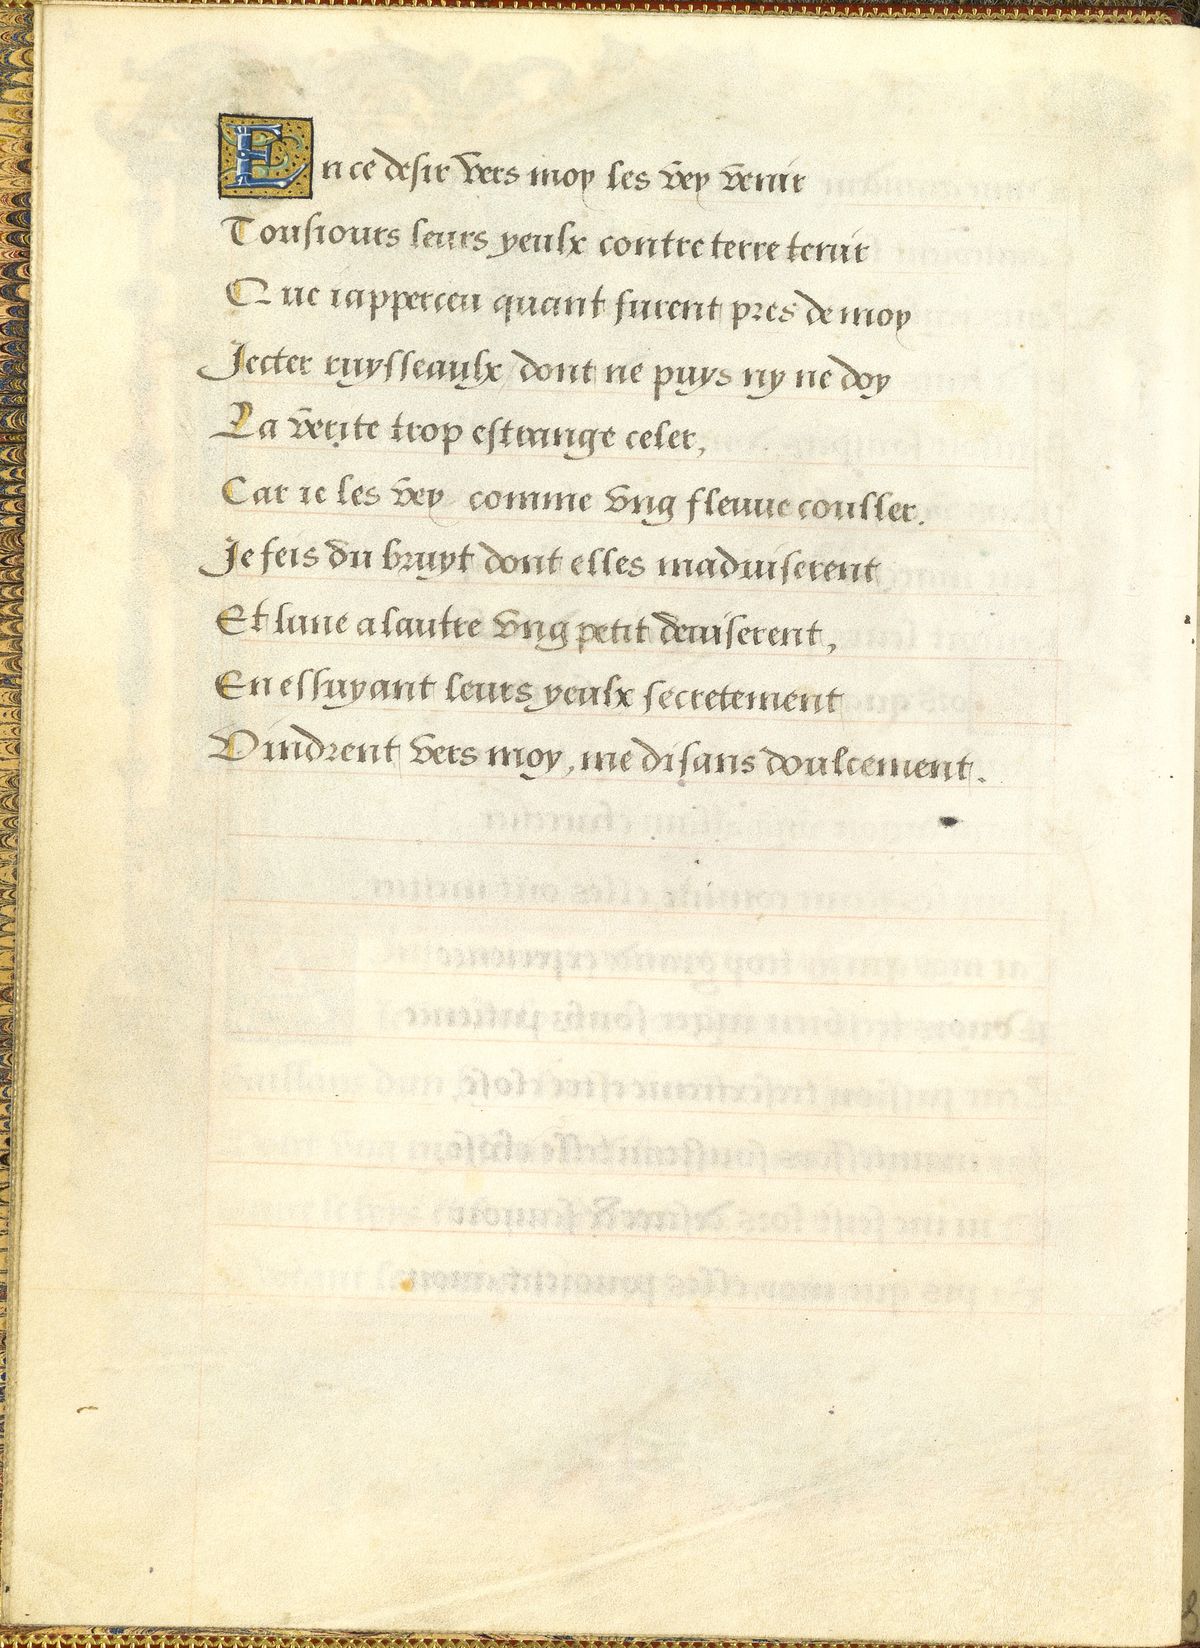 En ce desir vers moy les vey venir
Tousiours leurs yeulx contre terre tenir
Que iapperceu quant furent pres de moy
Jecter ruysseaulx dont ne puys ny ne doy
La verite trop estrange celer,
Car ie les vey comme vng fleuue couller.
Je feis du bruyt dont elles maduiserent
Et lune a lautre vng petit deuiserent,
En essuyant leurs yeulx secretement
Vindrent vers moy, me disans doulcement.